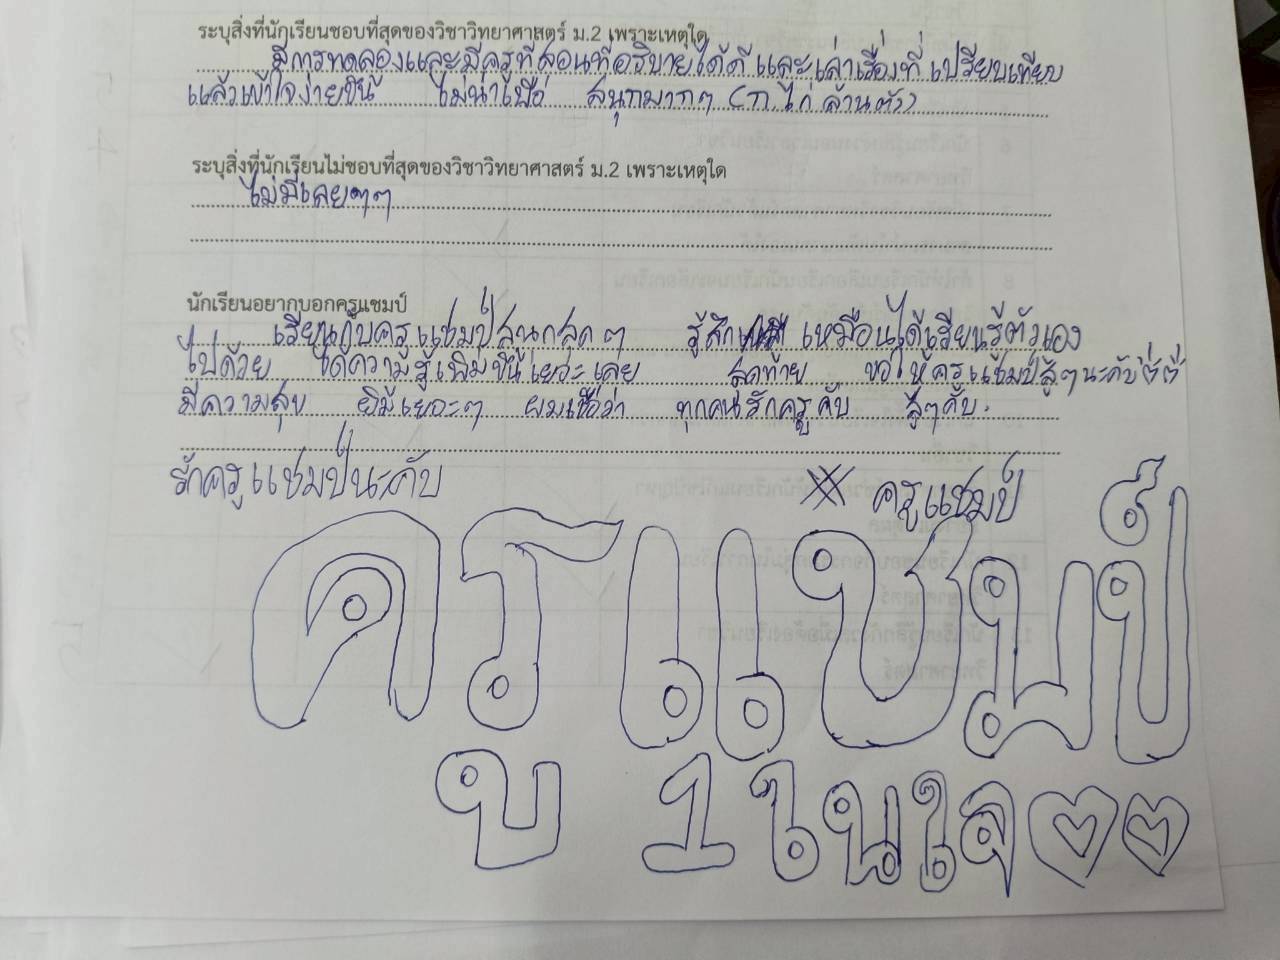 ระบุสิ่งที่นักเรียนชอบที่สุดของวิชาวิทยาศาสตร์ ม.2 เพราะเหตุใด
มีการทดลองและมีครูที่สอนที่อธิบายได้ดี และเล่าเรื่องที่ เปรียบเทียบ
แล้วเข้าใจง่ายขึ้น ไม่น่าเบื่อ สนุกมากๆ (ก ไก่ ล้านตัว)
ระบุสิ่งที่นักเรียนไม่ชอบที่สุดของวิชาวิทยาศาสตร์ ม.2 เพราะเหตุใด
ไม่มีเลยๆๆ
นักเรียนอยากบอกครูแชมป์
เรียนกับครูแชมป์สนุกสุดๆ รู้สึก เหมือนได้เรียนรู้ตัวเอง
ไปด้วย ได้ความรู้เพิ่มขึ้นเยอะเลย สุดท้าย ขอให้ครูแชมป์สู้ๆนะคับ
มีความสุข ยิ้มเยอะๆ ผมเชื่อว่า ทุกคนรักครูคับ สู้ๆคับ.
รักครูแชมป์นะคับ
ครูแชมป์
ครูแชมป์
1 ในใจ